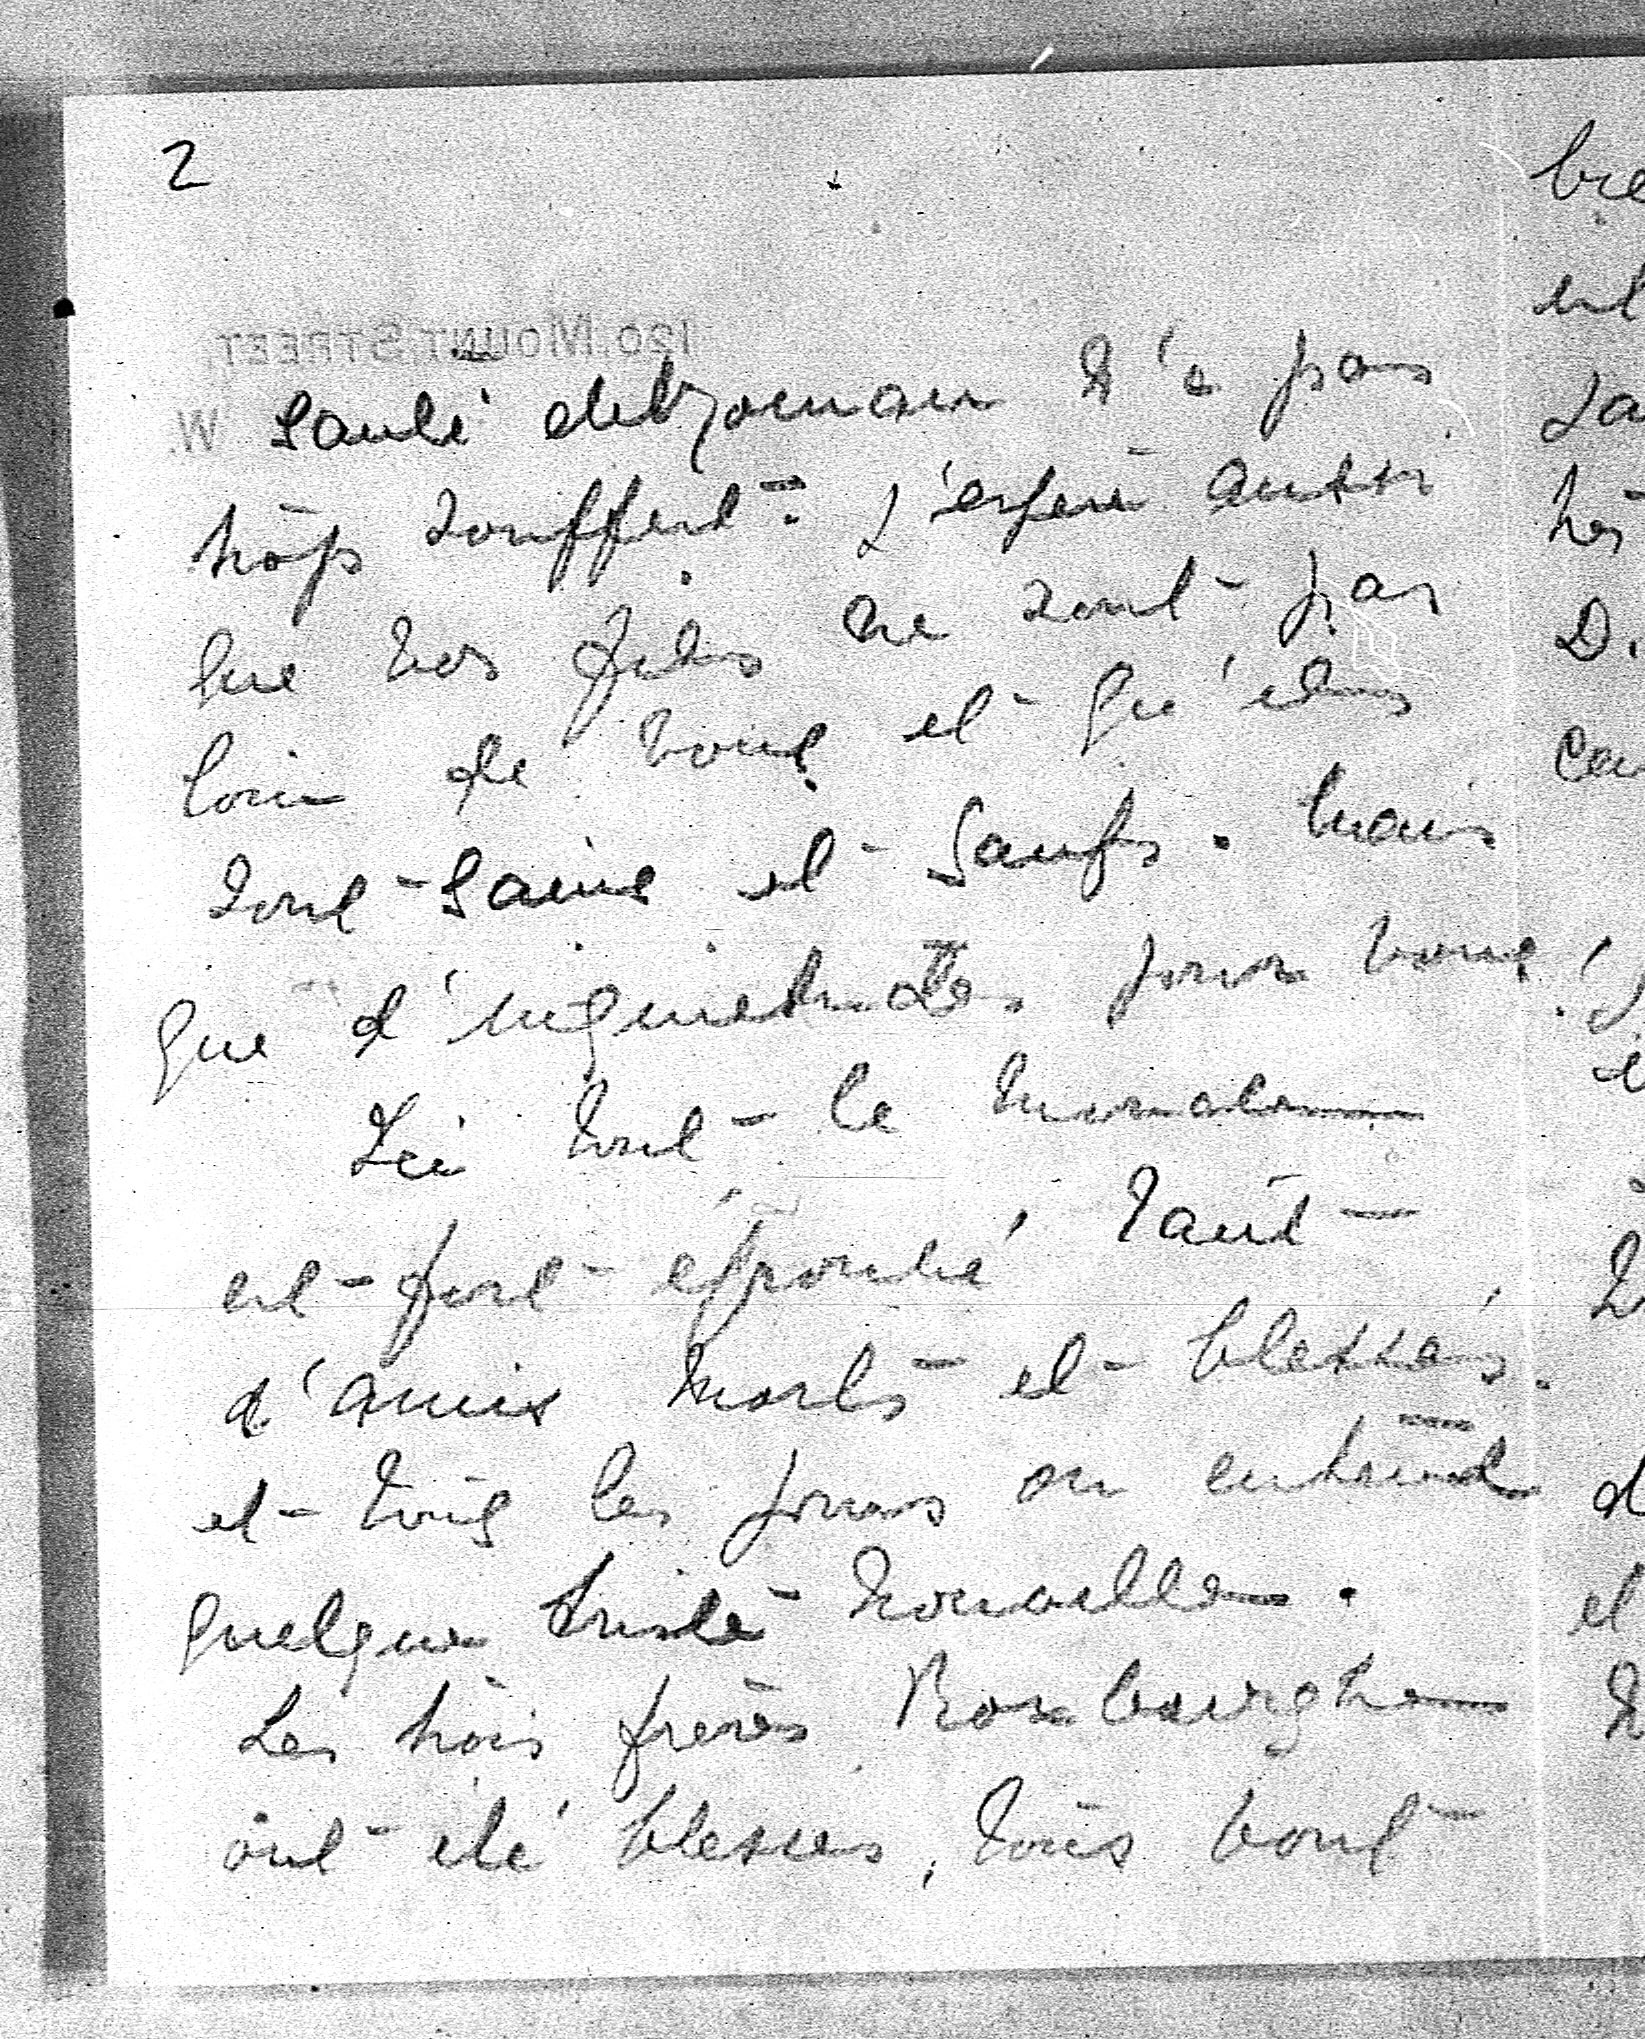 2
120. MOUNT STREET,
W.
santé de Germain n'a pas
trop souffert. J'espère aussi
que vos fils ne sont pas
loin de vous et qu'ils
sont sains et saufs. Mais
que d'inquietudes pour vous!
Ici tout le monde
est fort eprouvé, tant
d'amis morts et blessés.
et tous les jours on entend
quelque triste nouvelle.
Les trois frères Roxburghe
ont été blesses, tous vont